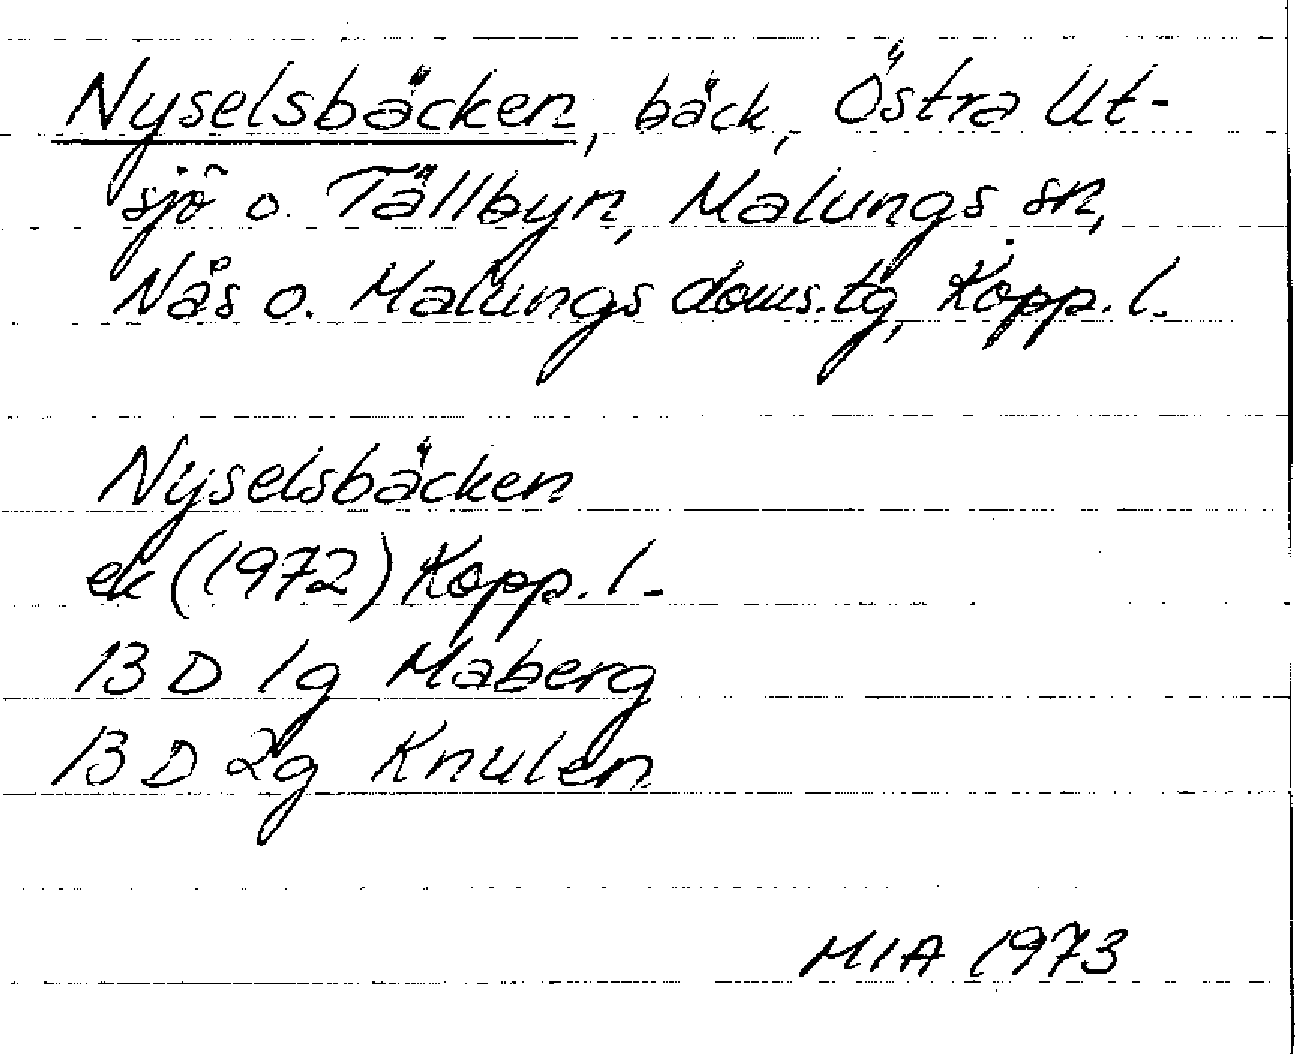 Nyselsbäcken, bäck, Östra Ut-
sjö o. Tällbyn, Malungs sn,
Nås o. Malungs doms.tg, Kopp. l.
Nyselsbäcken
ek (1972) Kopp. l.
13 D 1g Maberg
13 D 2g Knulen
MIA 1973